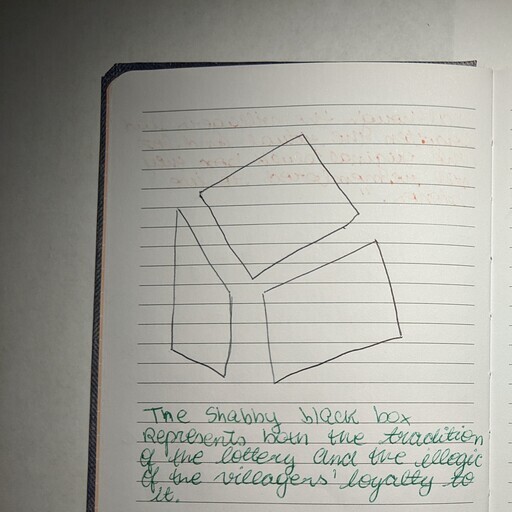 The Shabby black box
represents both the tradition
of the lottery and the illogic
of the villagers' loyalty to
it.